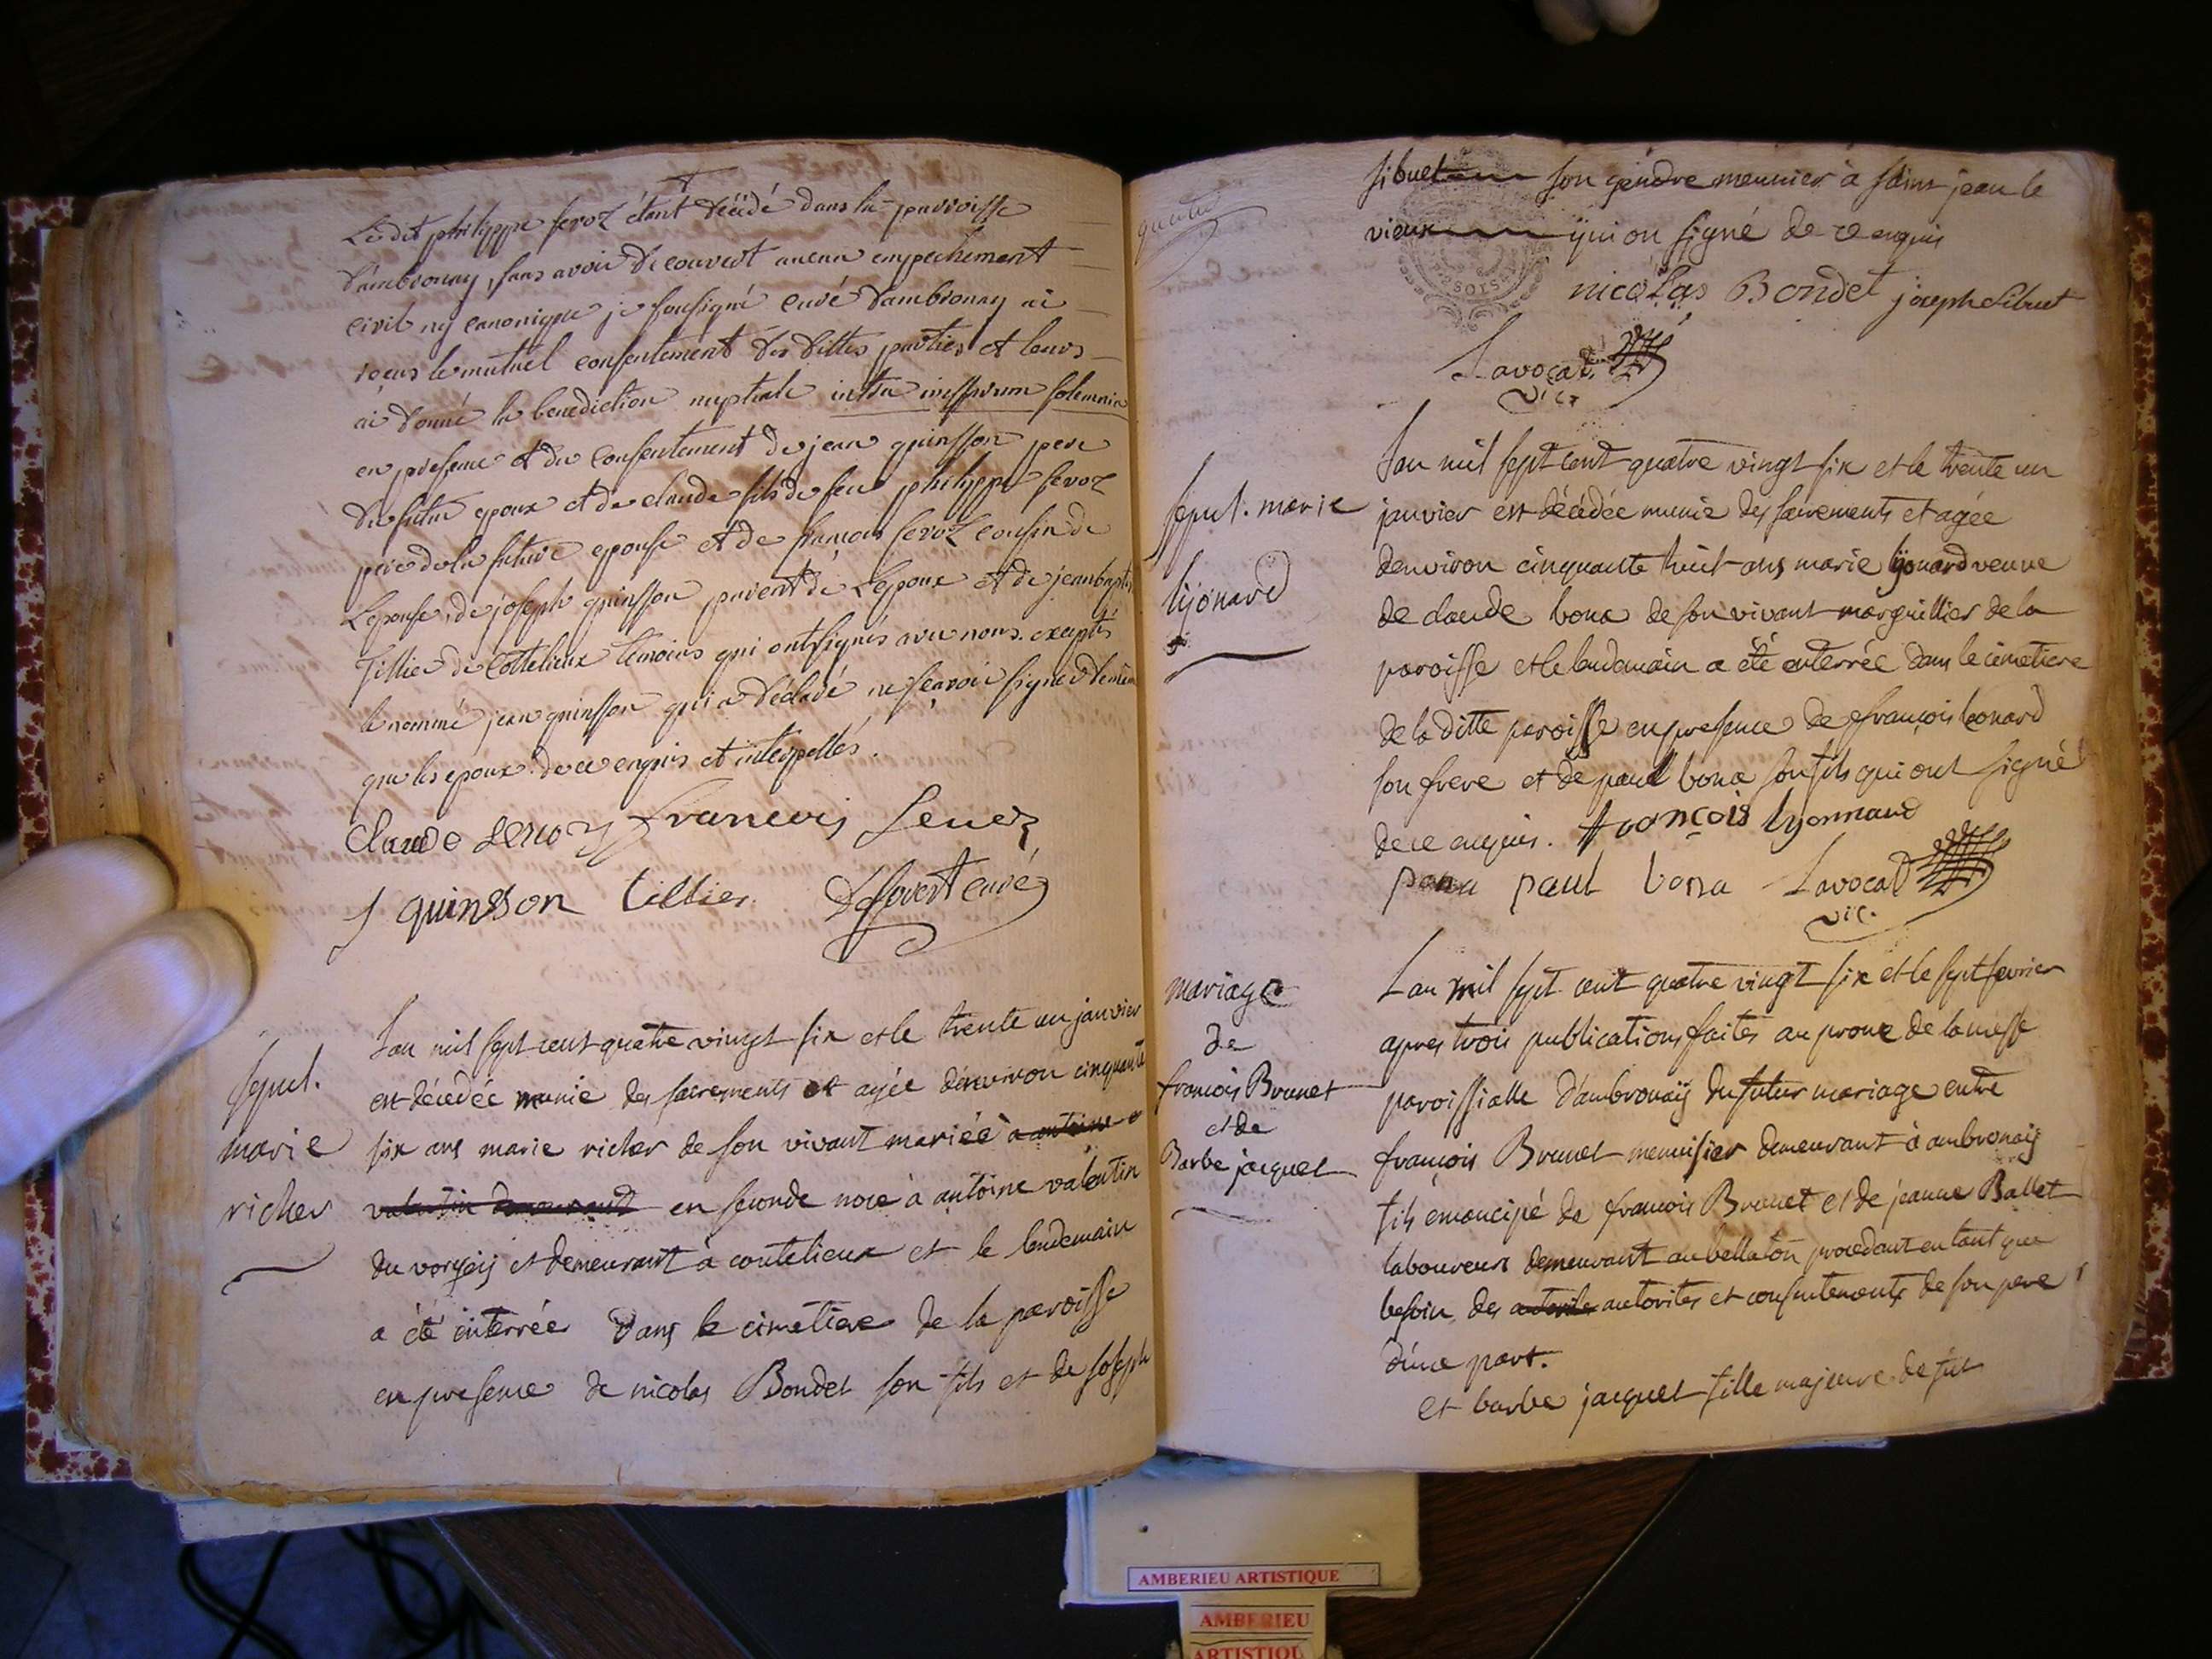 Ledit philippe feroz étant décédé dans la parroisse
d'ambronay, sans avoir decouvert aucun empechement
civil ny canonique je sousigné curé d'ambronay ai
reçus le mutuel consentement des dittes parties et leurs
ai donné la benediction nuptiale intra missarum solemnia
en presence et du consentement de jean quinsson pere
du futur epoux et de claude fils de feu philippe feroz
pere de la future epouse et de françois feroz cousin de
l'epouse, de joseph quinsson parent de l'epoux et de jean baptis
tillier de cottelieux temoins qui ont signés avec nous exceptés
le nommé jean quinsson qui a déclaré ne sçavoir signer de meme
que les epoux de ce enquis et interpellés.
Claude feroz françois
j quinson tillier curé
sepul.
marie
richer
Lan mil sept cent quatre vingt six et le trente un janvier
est décédée munie des sacrements et agée denviron cinquante
six ans marie richer de son vivant mariée a antoine
valentin demeurant en seconde noce à antoine valentin
du et demeurant à coutelieux et le lendemain
a été enterrée dans le cimetiere de la paroisse
en presence de nicolas Bondet son fils et de joseph
sibuet son gendre meunier à saint jean le
vieux qui on signé de ce enquis
nicolas Bondet joseph sibuet
Lavocat
vic
sepul. marie
lijonard
Lan mil sept cent quatre vingt six et le trente un
janvier est décédée munie des sacrements et agée
denviron cinquante huit ans marie lijonard veuve
de claude bona de son vivant marguillier de la
paroisse et le lendemain a été enterrée dans le cimetiere
de la ditte paroisse en presence de françois leonard
son frere et de paul bona son fils qui ont signé
de ce enquis. françois lyonnard
paul bona Lavocat
vic.
mariage
de
françois Brunet
et de
Barbe jacquet
Lan mil sept cent quatre vingt six et le sept fevrier
apres trois publications faites au prone de la messe
paroissialle d'ambronaÿ du futur mariage entre
françois Brunet menuisier demeurant à ambronaÿ
fils emancipé de françois Brunet et de jeanne Ballet
laboureurs demeurant au bellaton procedant en tant que
besoin des autorités et consentements de son pere
d'une part.
et barbe jacquet fille majeure de feu
AMBERIEU ARTISTIQUE
AMBERIEU
ARTISTIQU